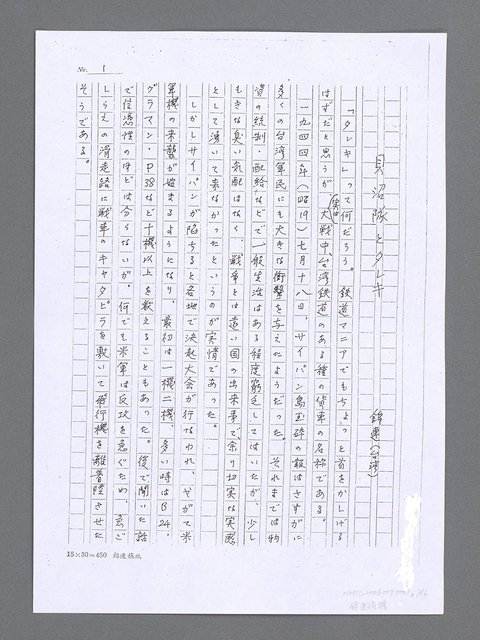 No. 1
貝沼隊とタレキ
錦連(台湾)
「タレキ」って何だろう。鉄道マニアでもちょっと首をかしげる
はずだと思うが、実は大戦中、台湾鉄道のある種の貨車の名称である。
一九四四年(昭19)七月十八日、サイパン島玉砕の報はさすがに
多くの台湾軍民にも大きな衝撃を与えたようだった。それまでは物
資の統制・配給などで一般生活はある程度窮乏してはいたが、少し
もきな臭い気配はなく、戦争とは遠い国の出来事で、余り切実な実感
として湧いて来なかったというのが実情であった。
しかしサイパンが陥ちると各地で決起大会が行なわれ、やがて米
軍機の来襲が始まるようになり、最初は一機二機、多い時はB24・
グラマン・P38など十機以上を数えることもあった。後で聞いた話
で信憑性のほどは分らないが、何でも米軍は反攻を急ぐため、急ご
しらえの滑走路に戦車のキャタピラを敷いて飛行機を離着陸させた
そうである。
15×30=450